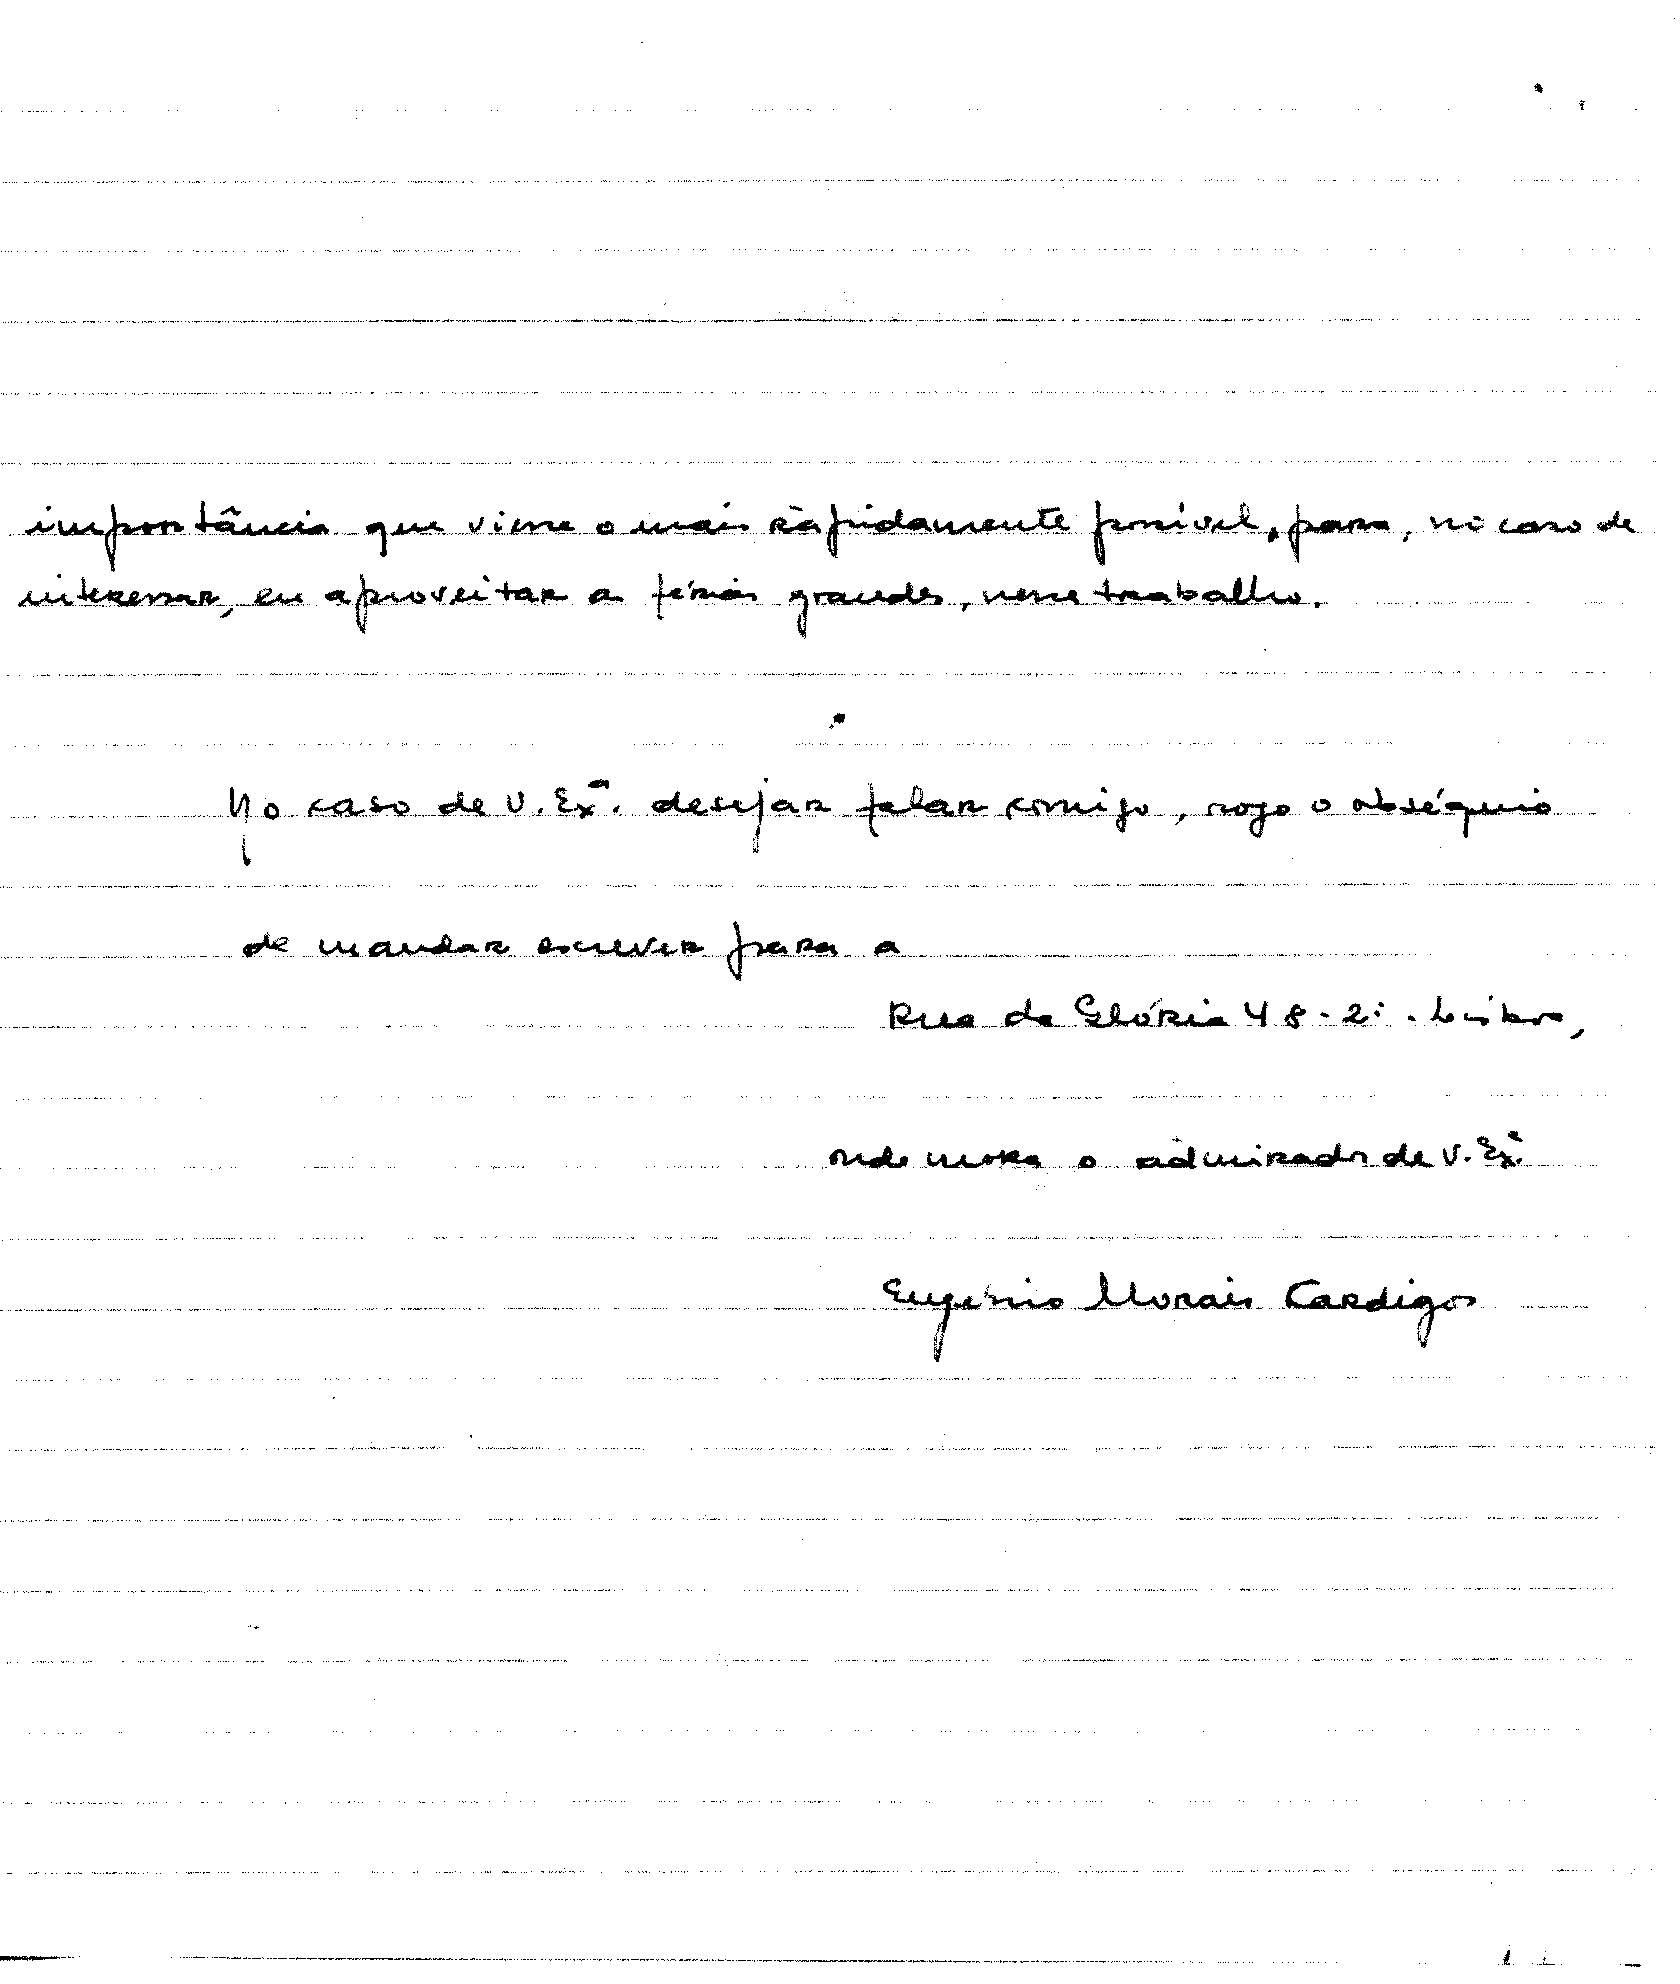 importância que viesse o mais ràpidamente possível, para, no caso de
interessar, eu aproveitar as férias grandes, nesse trabalho.
No caso de V. Exª. desejar falar comigo, rogo o obséquio
de mandar escrever para a
Rua da Glória 48-2º. Lisboa,
onde mora o admirador de V. Exª.
Eugénio Morais Cardigos